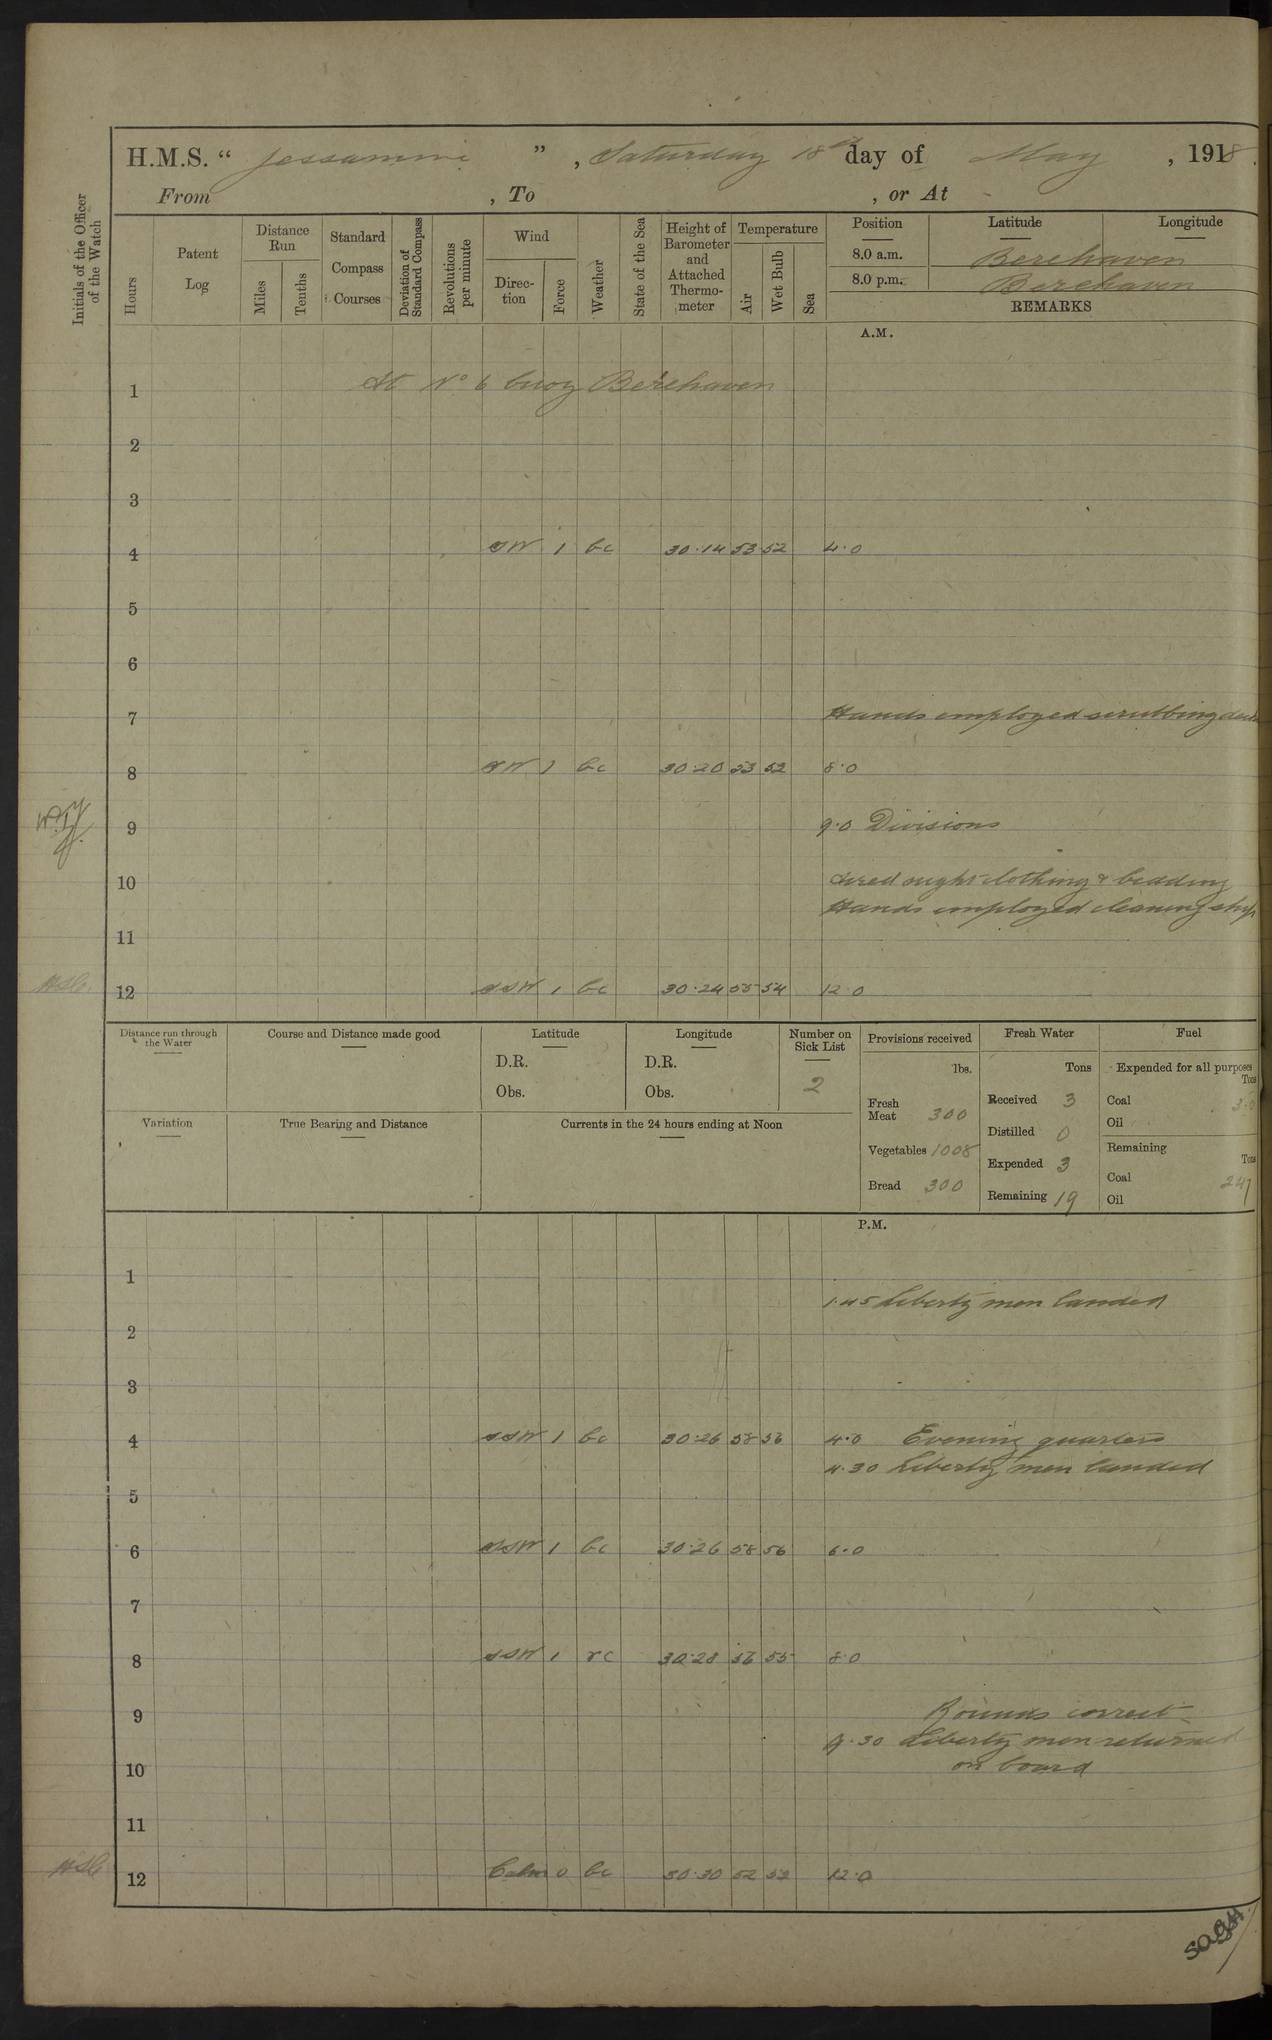 H.M.S. “ Jessamine ” , Saturday 18th day of May , 1918.
From , To , or At
Initials of the Officer of the Watch
Hours
Patent Log
Distance Run
Miles
Tenths
Standard Compass Courses
Deviation of Standard Compass
Revolutions per minute
Wind
Direction
Force
Weather
State of the Sea
Height of Barometer and Attached Thermometer
Temperature
Air
Wet Bulb
Sea
Position Latitude Longitude
8.0 a.m. Berehaven
8.0 p.m. Berehaven
REMARKS
A.M.
1 At No 6 buoy Berehaven
2
3
4 SW 1 bc 30.14 53 52 4.0
5
6
7 Hands employed scrubbing decks
8 SW 1 bc 30.20 53 52 8.0
9 9.0 Divisions
10 Aired night clothing & bedding
Hands employed cleaning ship
11
12 SSW 1 bc 30.24 55 54 12.0
Distance run through the Water
Course and Distance made good
Latitude
D.R.
Obs.
Longitude
D.R.
Obs.
Number on Sick List
2
Variation
True Bearing and Distance
Currents in the 24 hours ending at Noon
Provisions received
lbs.
Fresh Meat 300
Vegetables 1008
Bread 300
Fresh Water
Tons
Received 3
Distilled 0
Expended 3
Remaining 19
Fuel
Expended for all purposes
Tons
Coal 3.0
Oil
Remaining
Tons
Coal 247
Oil
P.M.
1
1.45 Liberty men landed
2
3
4 SSW 1 bc 30.26 58 56 4.0 Evening quarters
4.30 Liberty men landed
5
6 SSW 1 bc 30.26 58 56 6.0
7
8 SSW 1 rc 30.28 56 55 8.0
9 Rounds correct
9.30 Liberty men returned
10 on board
11
12 Calm 0 bc 30.30 52 52 12.0